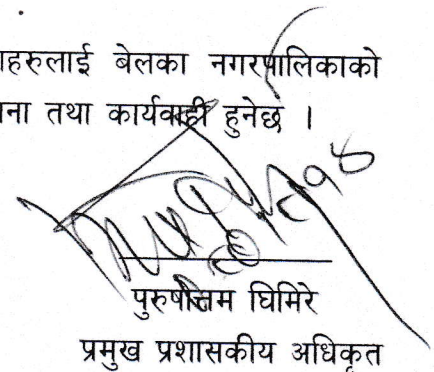 हरुलाई बेलका नगरपालिकाको
ना तथा कार्यवाही हुनेछ ।
पुरुषोत्तम घिमिरे
प्रमुख प्रशासकीय अधिकृत